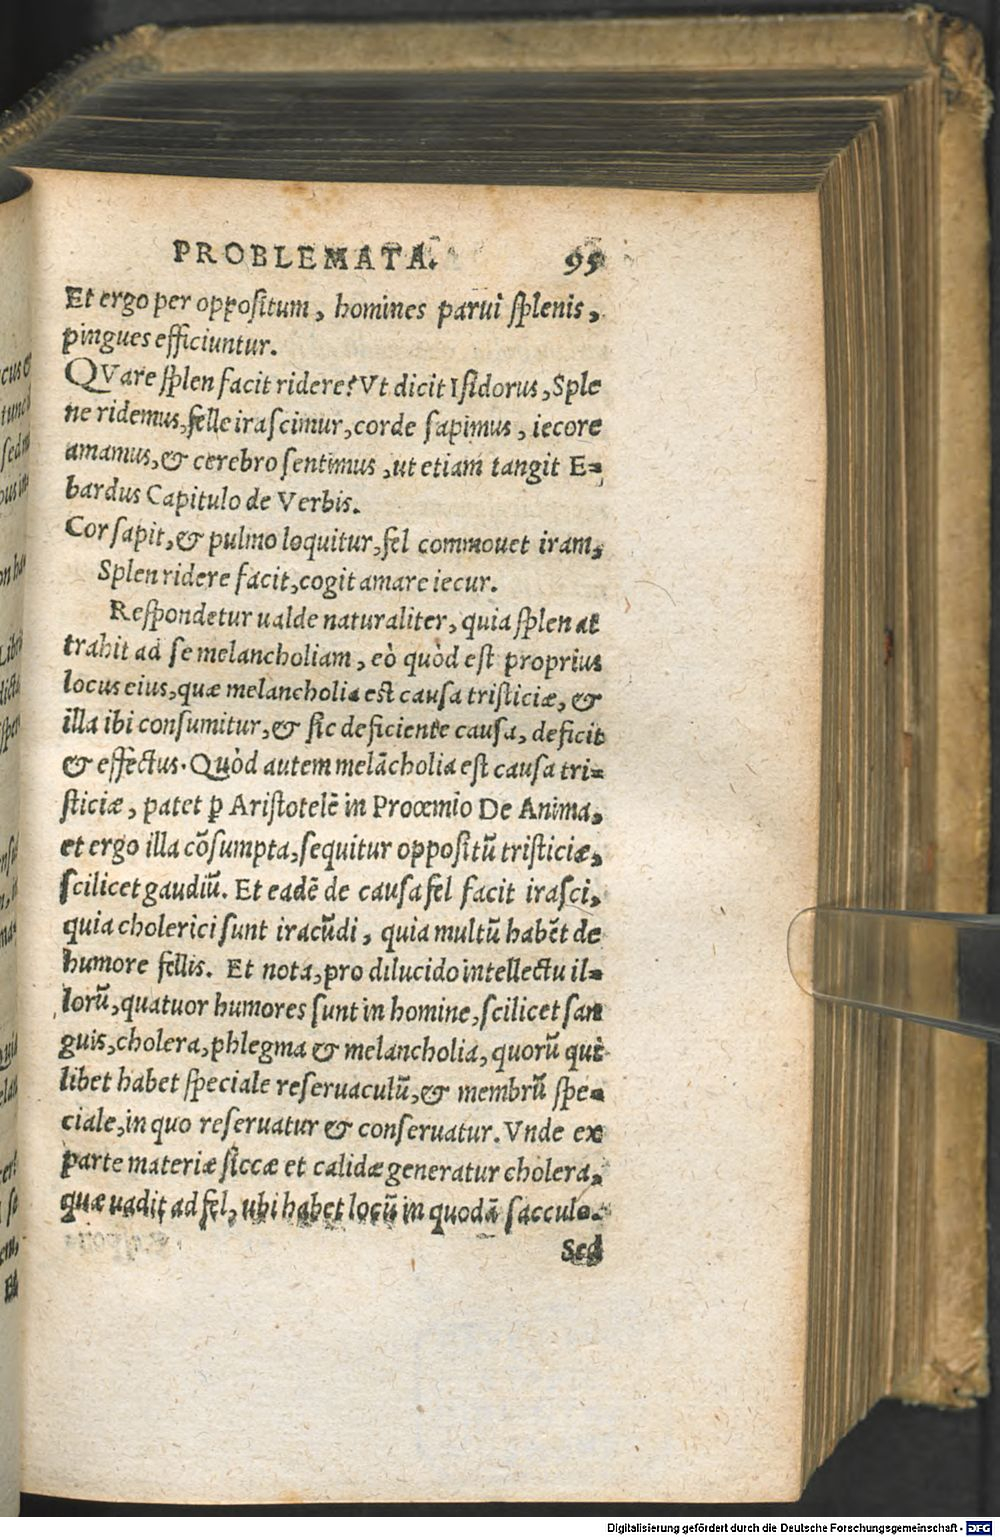 PROBLEMATA. 95
Et ergo per oppositum, homines parui splenis,
pingues efficiuntur.
QVare splen facit ridere? Vt dicit Isidorus, Sple
ne ridemus, felle irascimur, corde sapimus, iecore
amamus, & cerebro sentimus, ut etiam tangit E=
bardus Capitulo de Verbis.
Cor sapit, & pulmo loquitur, fel commouet iram,
Splen ridere facit, cogit amare iecur.
Respondetur ualde naturaliter, quia splen at
trahit ad se melancholiam, eò quòd est proprius
locus eius, quæ melancholia est causa tristiciæ, &
illa ibi consumitur, & sic deficiente causa, deficit
& effectus. Quòd autem melãcholia est causa tri=
sticiæ, patet ꝑ Aristotelẽ in Proœmio De Anima,
et ergo illa cõsumpta, sequitur oppositũ tristiciæ,
scilicet gaudiũ. Et eadẽ de causa fel facit irasci,
quia cholerici sunt iracũdi, quia multũ habẽt de
humore fellis. Et nota, pro dilucido intellectu il=
lorũ, quatuor humores sunt in homine, scilicet san
guis, cholera, phlegma & melancholia, quorũ qui
libet habet speciale reseruaculũ, & membrũ spe=
ciale, in quo reseruatur & conseruatur. Vnde ex
parte materiæ siccæ et calidæ generatur cholera,
quæ uadit ad fel, ubi habet locũ in quodã sacculo.
Sed
Digitalisierung gefördert durch die Deutsche Forschungsgemeinschaft - DFG